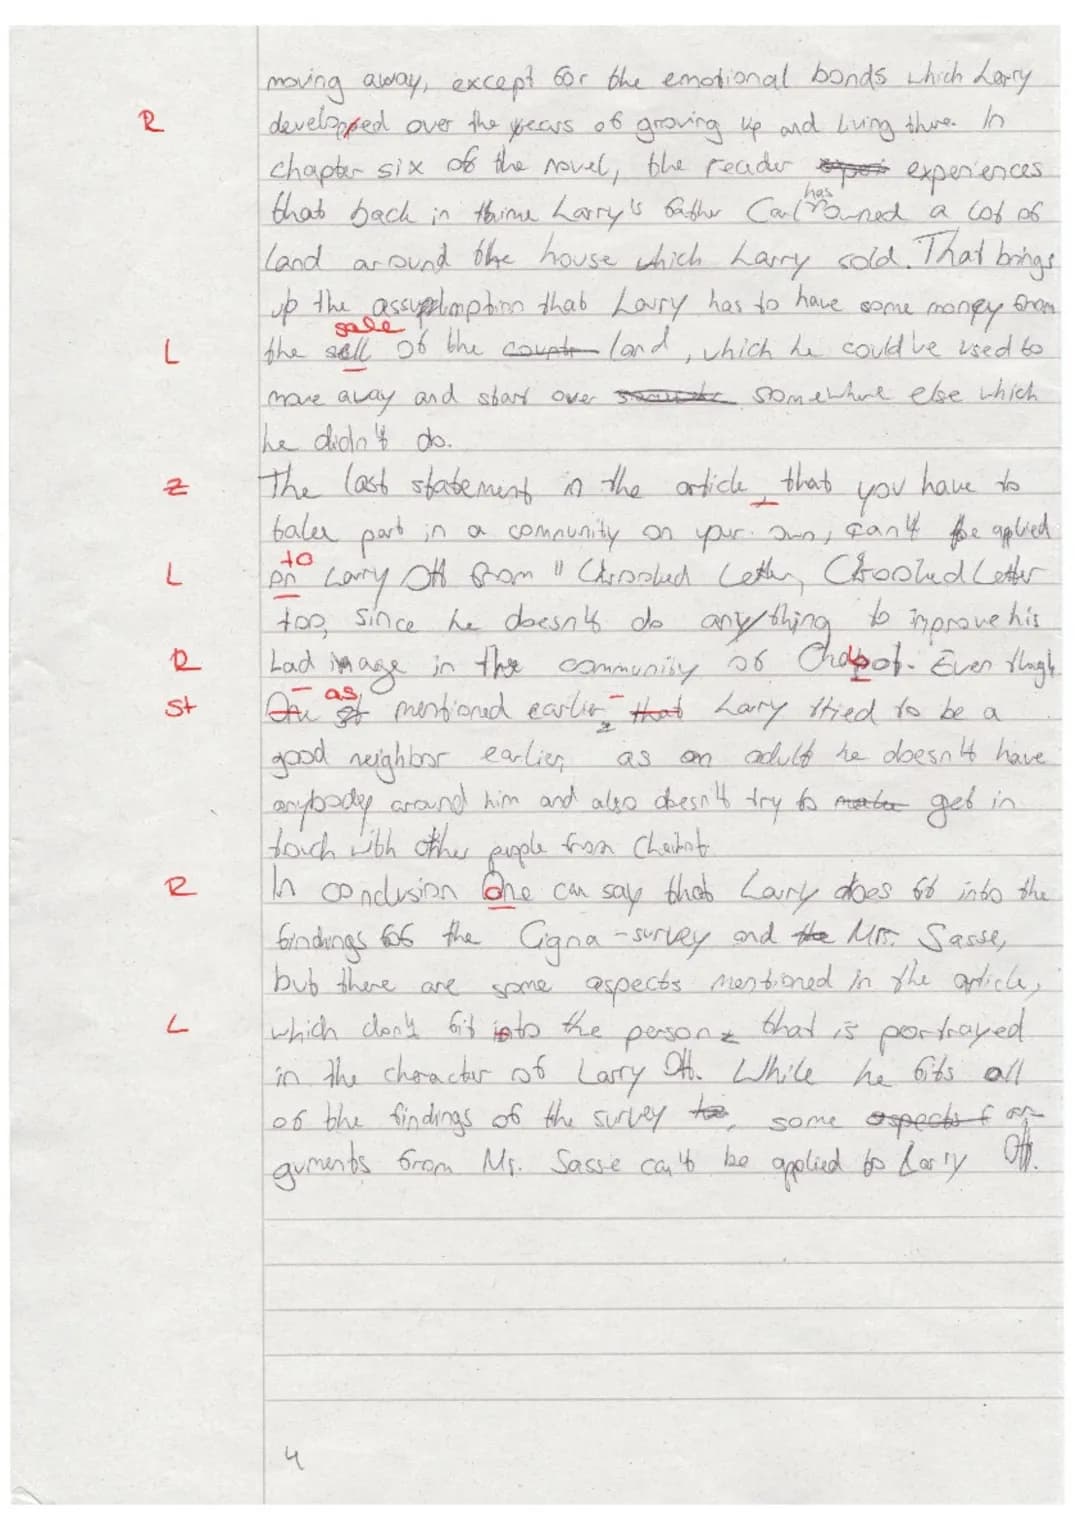 moving away, except for the emotional bonds which Larry
R developped over the years of growing up and living there. In
chapter six of the novel, the reader experiences
has
that back in time Larry's father Carl owned a lot of
land around the house which Larry sold. That brings
up the assumption that Larry has to have some money from
sale
L the sell of the land, which he could've used to
move away and start over somewhere else which
he didn't do.
Z The last statement in the article, that you have to
take part in a community on your own, can't be applied
to
L on Larry Ott from "Crooked Letter, Crooked Letter
too, since he doesn't do anything to improve his
R bad image in the community of Chabot. Even though
as
St mentioned earlier, that Larry tried to be a
good neighbor earlier, as an adult he doesn't have
anybody around him and also doesn't try to get in
touch with other people from Chabot.
R In conclusion One can say that Larry does fit into the
findings of the Cigna-survey and Mr. Sasse,
but there are some aspects mentioned in the article,
L which don't fit into the person, that is portrayed
in the character of Larry Ott. While he fits all
of the findings of the survey, some ar-
guments from Mr. Sasse can't be applied to Larry Ott.
4